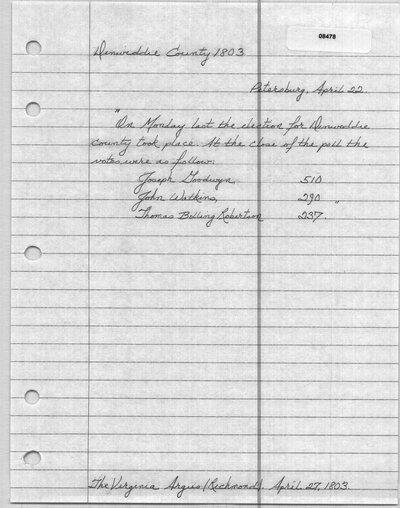 08478
Dinweddie County 1803
Petersburg, April 22.
"On Monday last the election for Dinweddie
county took place. At the close of the poll the
votes were as follow:
Joseph Goodwyn 510
John Watkins, 290 "
Thomas Bolling Robertson 237.
The Virginia Argus (Richmond). April 27, 1803.